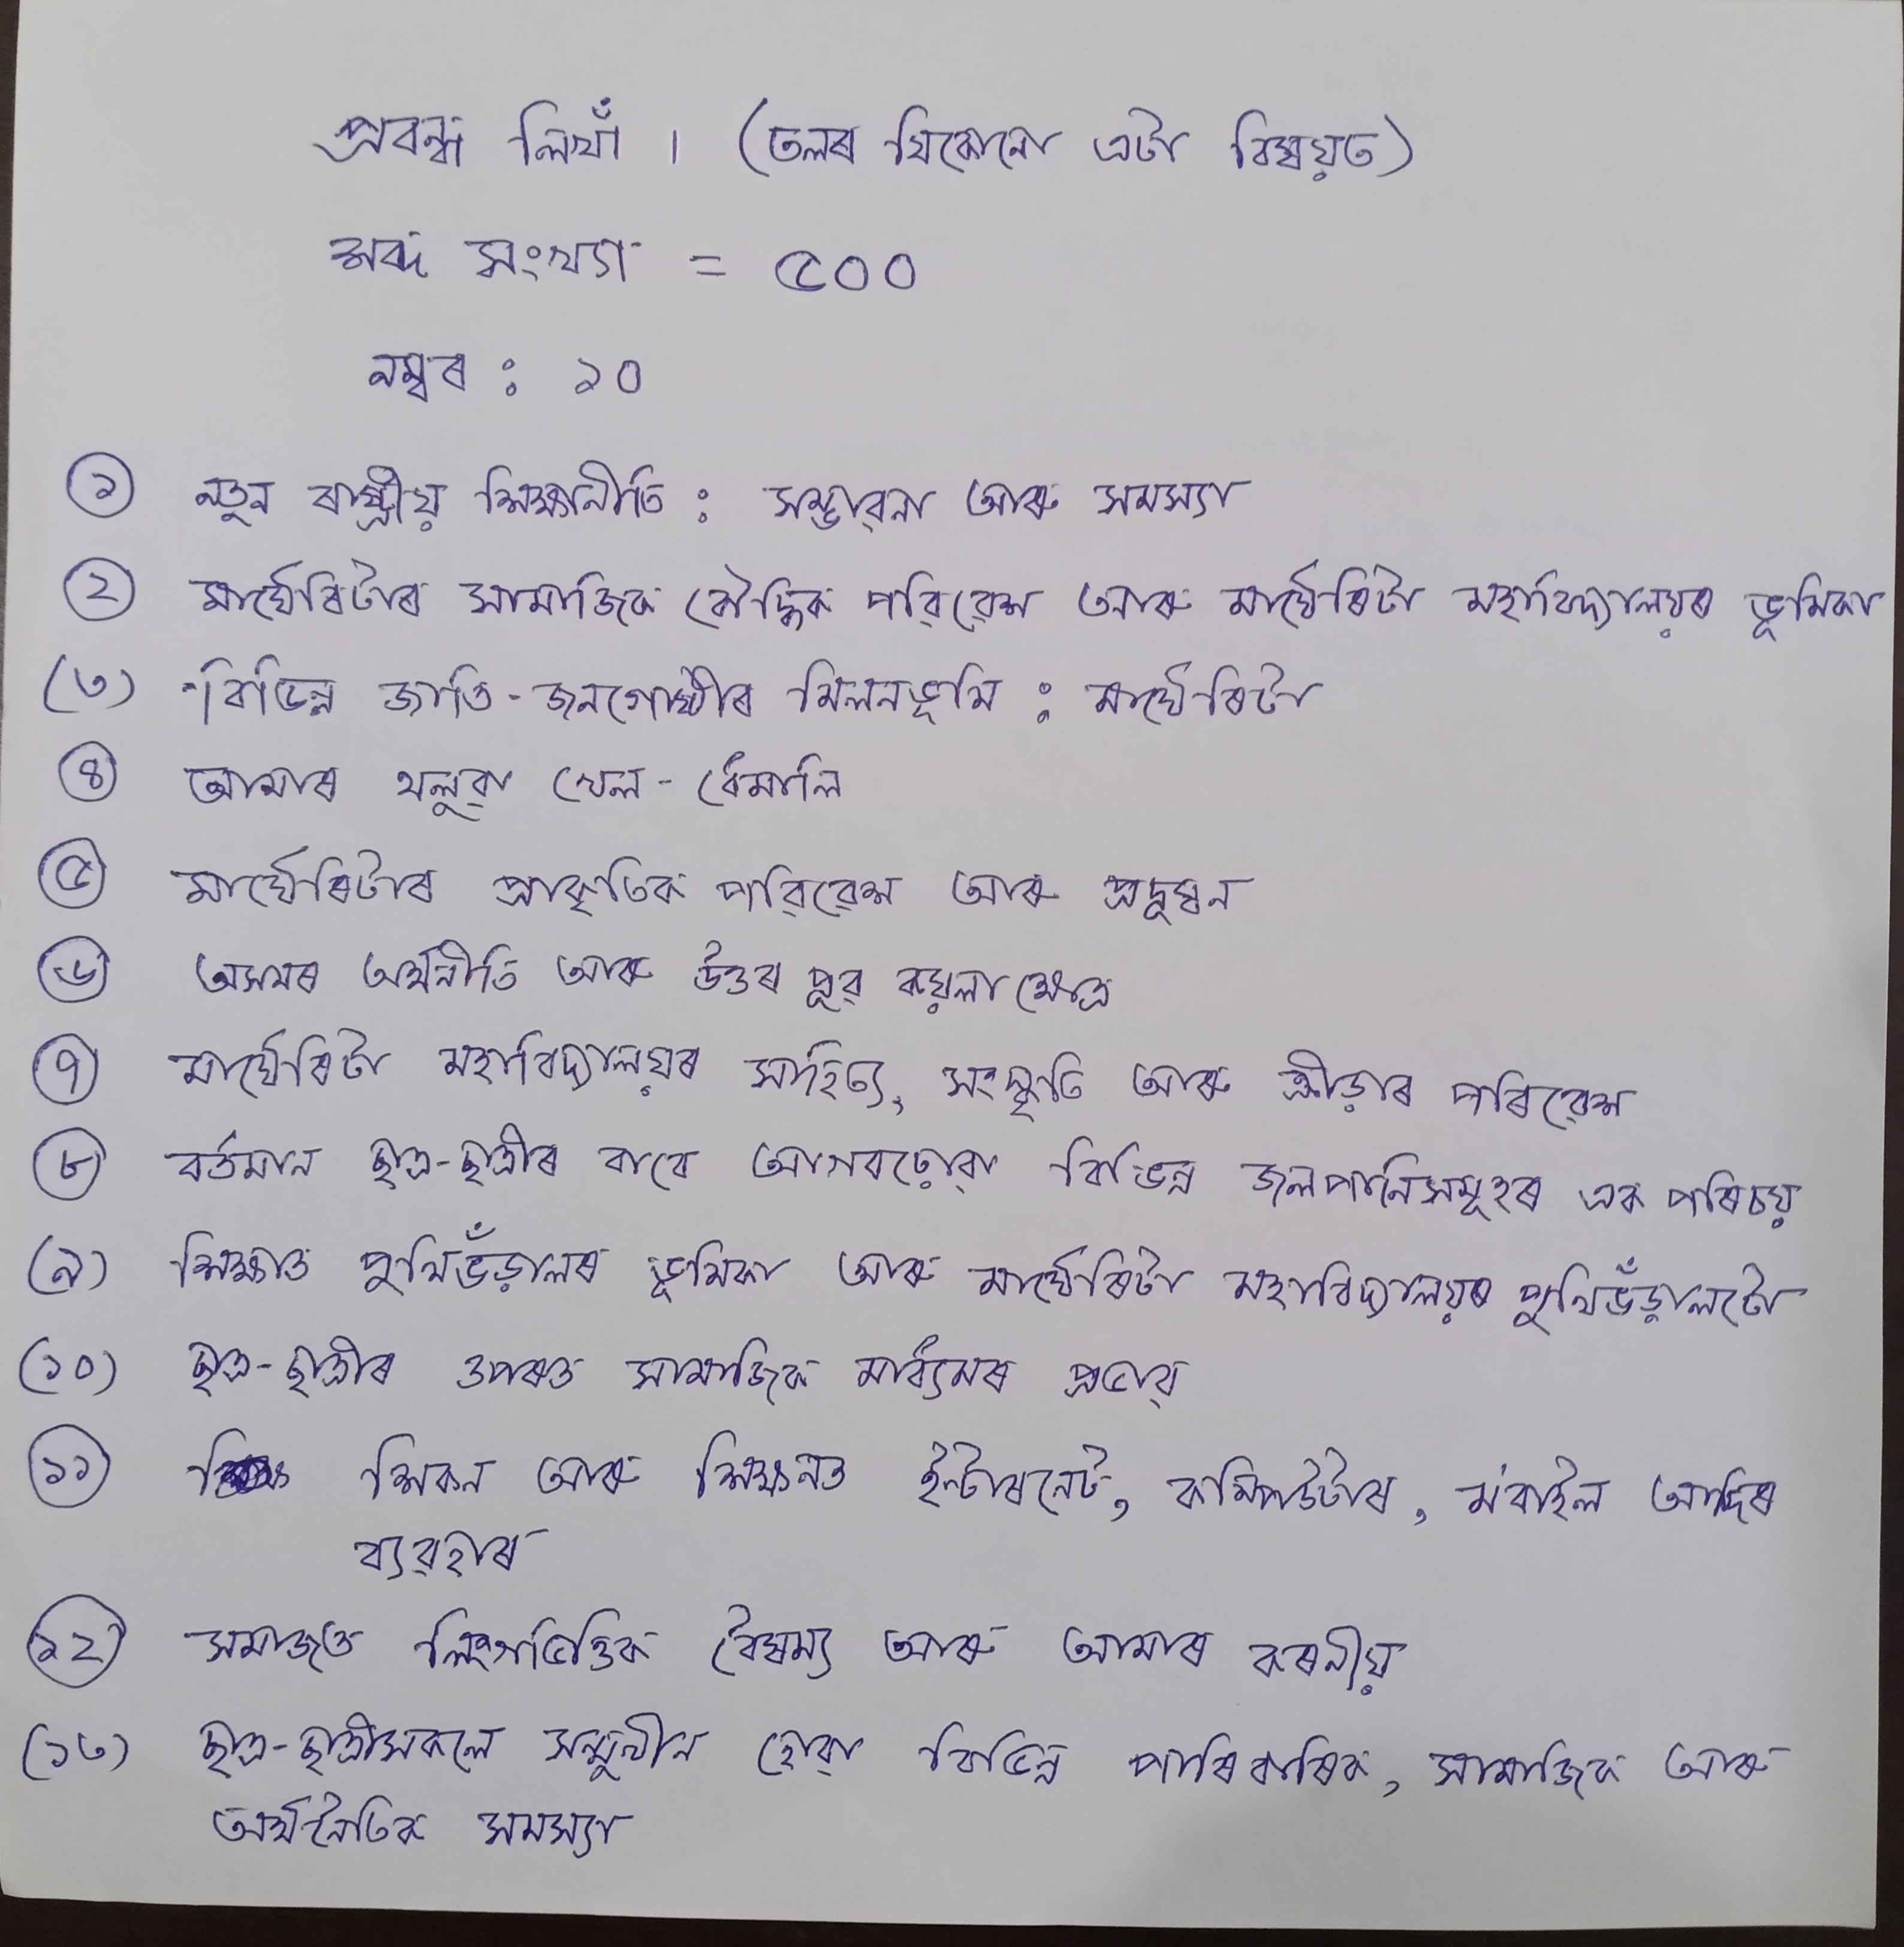 প্ৰবন্ধ লিখাঁ । (তলৰ যিকোনো এটা বিষয়ত)
শব্দ সংখ্যা = ৫০০
নম্বৰ : ১০
১ নতুন ৰাষ্ট্ৰীয় শিক্ষানীতি : সম্ভাৱনা আৰু সমস্যা
২ মাৰ্ঘেৰিটাৰ সামাজিক বৌদ্ধিক পৰিৱেশ আৰু মাৰ্ঘেৰিটা মহাবিদ্যালয়ৰ ভূমিকা
(৩) বিভিন্ন জাতি-জনগোষ্ঠীৰ মিলনভূমি : মাৰ্ঘেৰিটা
৪ আমাৰ থলুৱা খেল-ধেমালি
৫ মাৰ্ঘেৰিটাৰ প্ৰাকৃতিক পৰিৱেশ আৰু প্ৰদূষন
৬ অসমৰ অৰ্থনীতি আৰু উত্তৰ পূব কয়লাক্ষেত্ৰ
৭ মাৰ্ঘেৰিটা মহাবিদ্যালয়ৰ সাহিত্য, সংস্কৃতি আৰু ক্ৰীড়াৰ পৰিৱেশ
৮ বৰ্তমান ছাত্ৰ-ছাত্ৰীৰ বাবে আগবঢ়োৱা বিভিন্ন জলপানিসমূহৰ এক পৰিচয়
(৯) শিক্ষাত পুথিভঁড়ালৰ ভূমিকা আৰু মাৰ্ঘেৰিটা মহাবিদ্যালয়ৰ পুথিভঁড়ালটো
(১০) ছাত্ৰ-ছাত্ৰীৰ ওপৰত সামাজিক মাধ্যমৰ প্ৰভাৱ
১১ শিকন আৰু শিক্ষনত ইন্টাৰনেট, কম্পিউটাৰ, ম'বাইল আদিৰ
ব্যৱহাৰ
১২ সমাজত লিংগভিত্তিক বৈষম্য আৰু আমাৰ কৰনীয়
(১৩) ছাত্ৰ-ছাত্ৰীসকলে সন্মুখীন হোৱা বিভিন্ন পাৰিবাৰিক, সামাজিক আৰু
অৰ্থনৈতিক সমস্যা